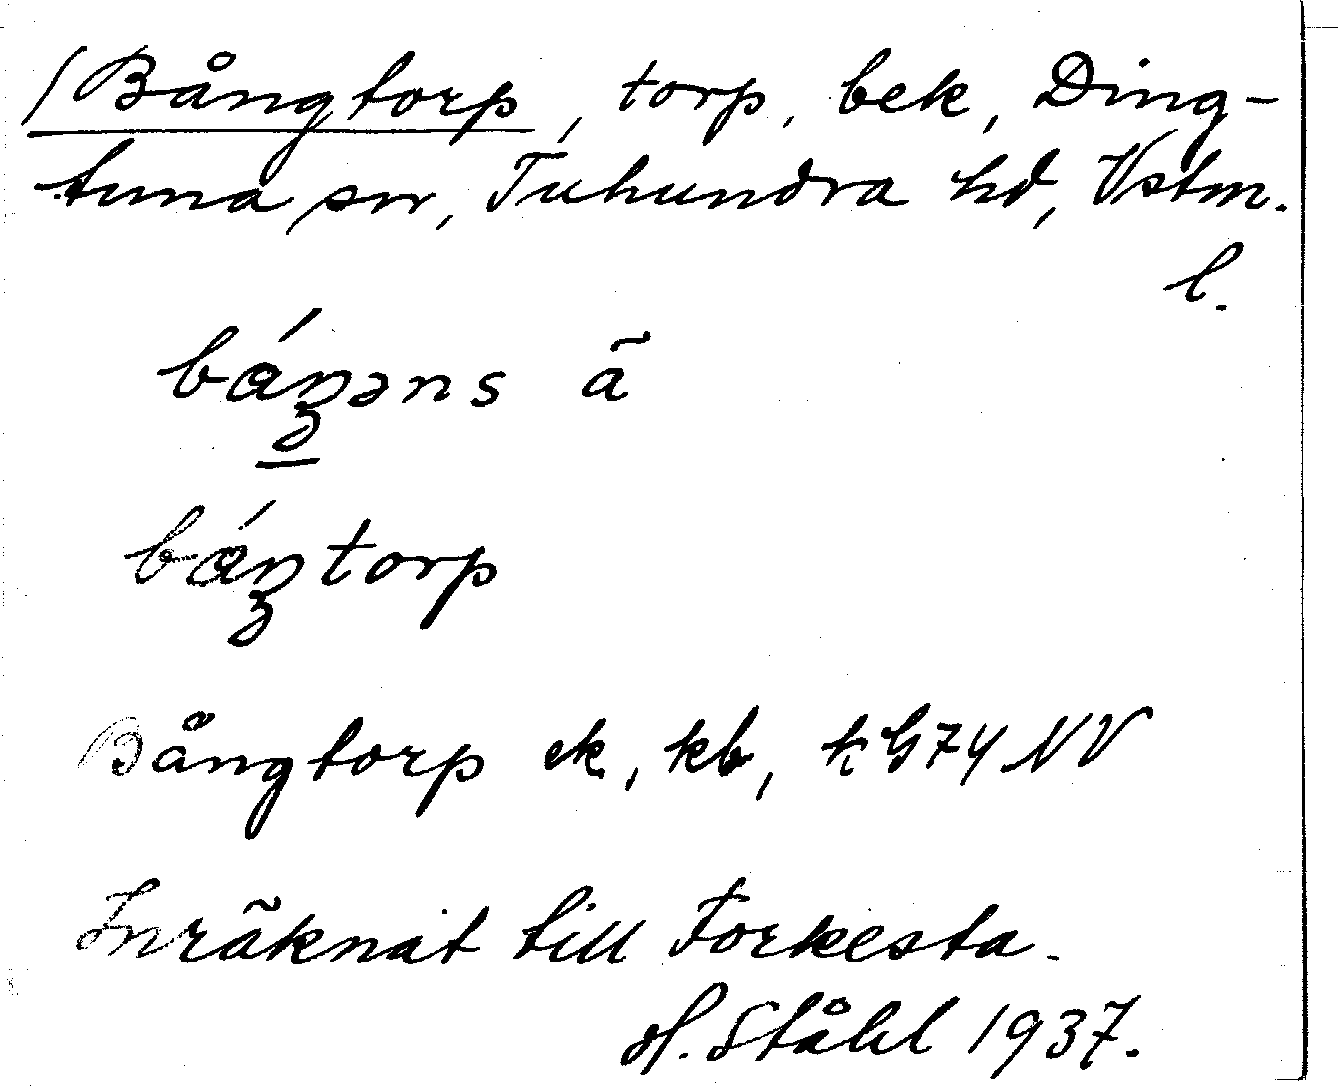 /Bångtorp, torp, bek, Ding-
tuna sn, Tuhundra hd, Vstm.
l.
båŋəns ä
båŋtorp
Bångtorp ek, kb, k G74 NV
Inräknat till Forkesta.
H. Ståhl 1937.